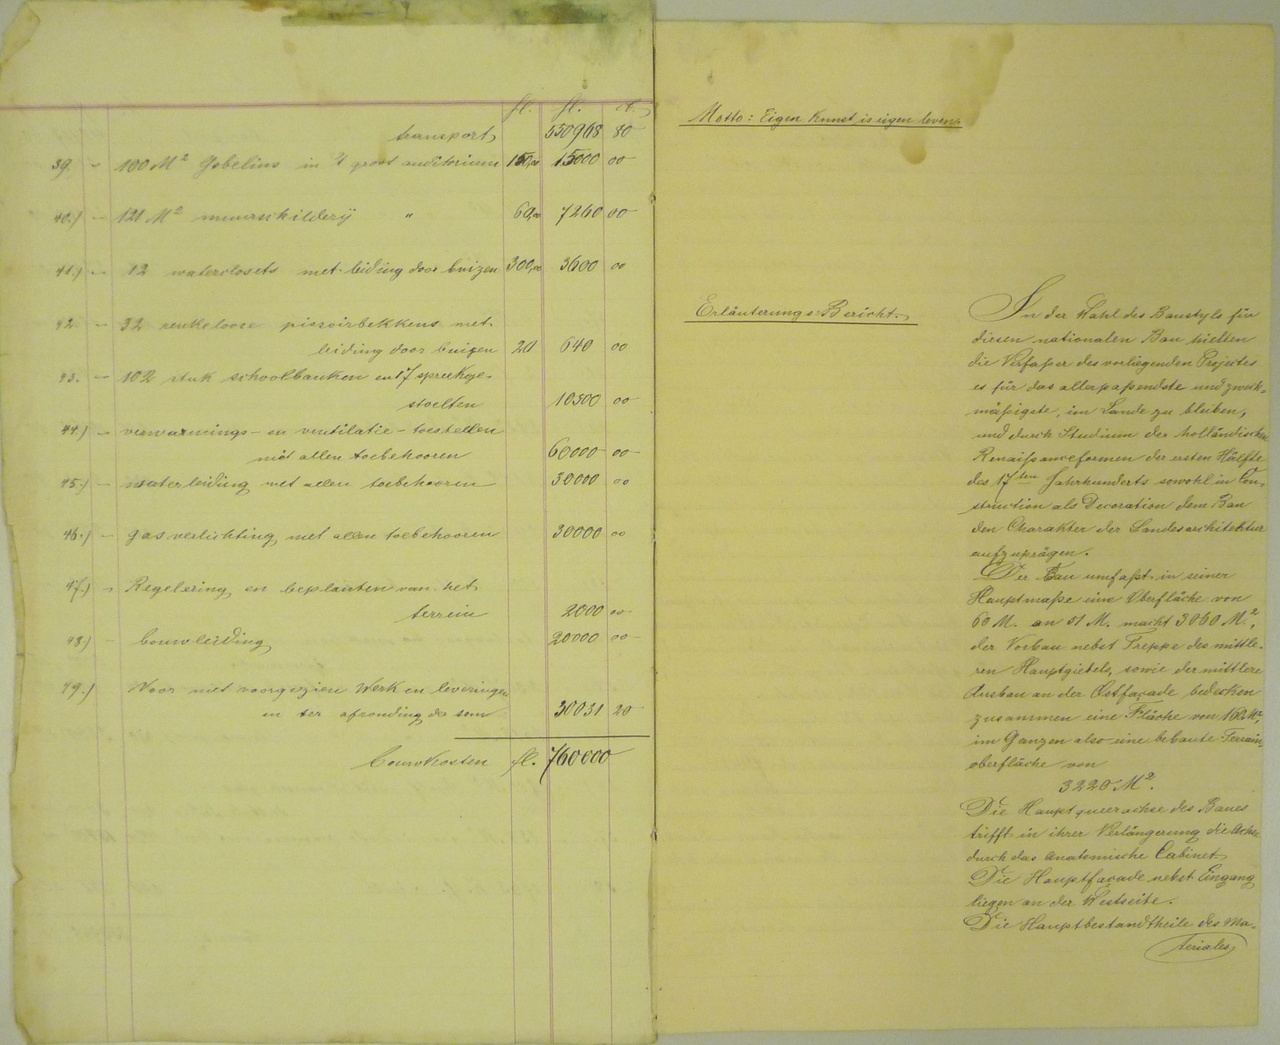 fl. fl. ct.
transport 550968 80
39. - 100 M² Gobelins in 't groot auditorium 150,00 15000 00
40.) - 121 M² muurschilderij " 60,00 7260 00
41.) - 12 waterclosets met leiding door buizen 300,00 3600 00
42. - 32 reukeloose pissoirbekkens met
leiding door buizen 20 640 00
43. - 102 stuk schoolbanken en 17 spreekge-
stoelten 10500 00
44.) - verwarmings- en ventilatie-toestellen
met allen toebehooren 60000 00
45.) - waterleiding met allen toebehooren 30000 00
46.) - gasverlichting met allen toebehooren 30000 00
47.) - Regelering en beplanten van het
terrein 2000 00
48.) - bouwleiding 20000 00
49.) Voor niet voorgeziene Werk en leveringen
en ter afronding de som 30031 20
bouwkosten fl. 760000
Motto: Eigen Kunst is eigen leven.
Erläuterungs-Bericht.
In der Wahl des Baustyls für
diesen nationalen Bau hielten
die Verfaßer des vorliegenden Projectes
es für das allerpaßendste und zweck-
mäßigste, im Lande zu bleiben,
und durch Studium der holländischen
Renaißanceformen der ersten Hälfte
des 17ten Jahrhunderts sowohl in Con-
struction als Decoration dem Bau
den Charakter der Landesarchitektur
aufzuprägen.
Der Bau umfaßt in seiner
Hauptmaße eine Oberfläche von
60 M. an 51 M. macht 3060 M²,
der Vorbau nebst Treppe des mittle-
ren Hauptgiebels, sowie der mittlere
Ausbau an der Ostfaçade bedecken
zusammen eine Fläche von 160 M²,
im Ganzen also eine bebaute Terrain
oberfläche von
3220 M².
Die Hauptqueerachse des Baues
trifft in ihrer Verlängerung die Achse
durch das Anatomische Cabinet.
Die Hauptfaçade nebst Eingang
liegen an der Westseite.
Die Hauptbestandtheile des Ma-
teriales